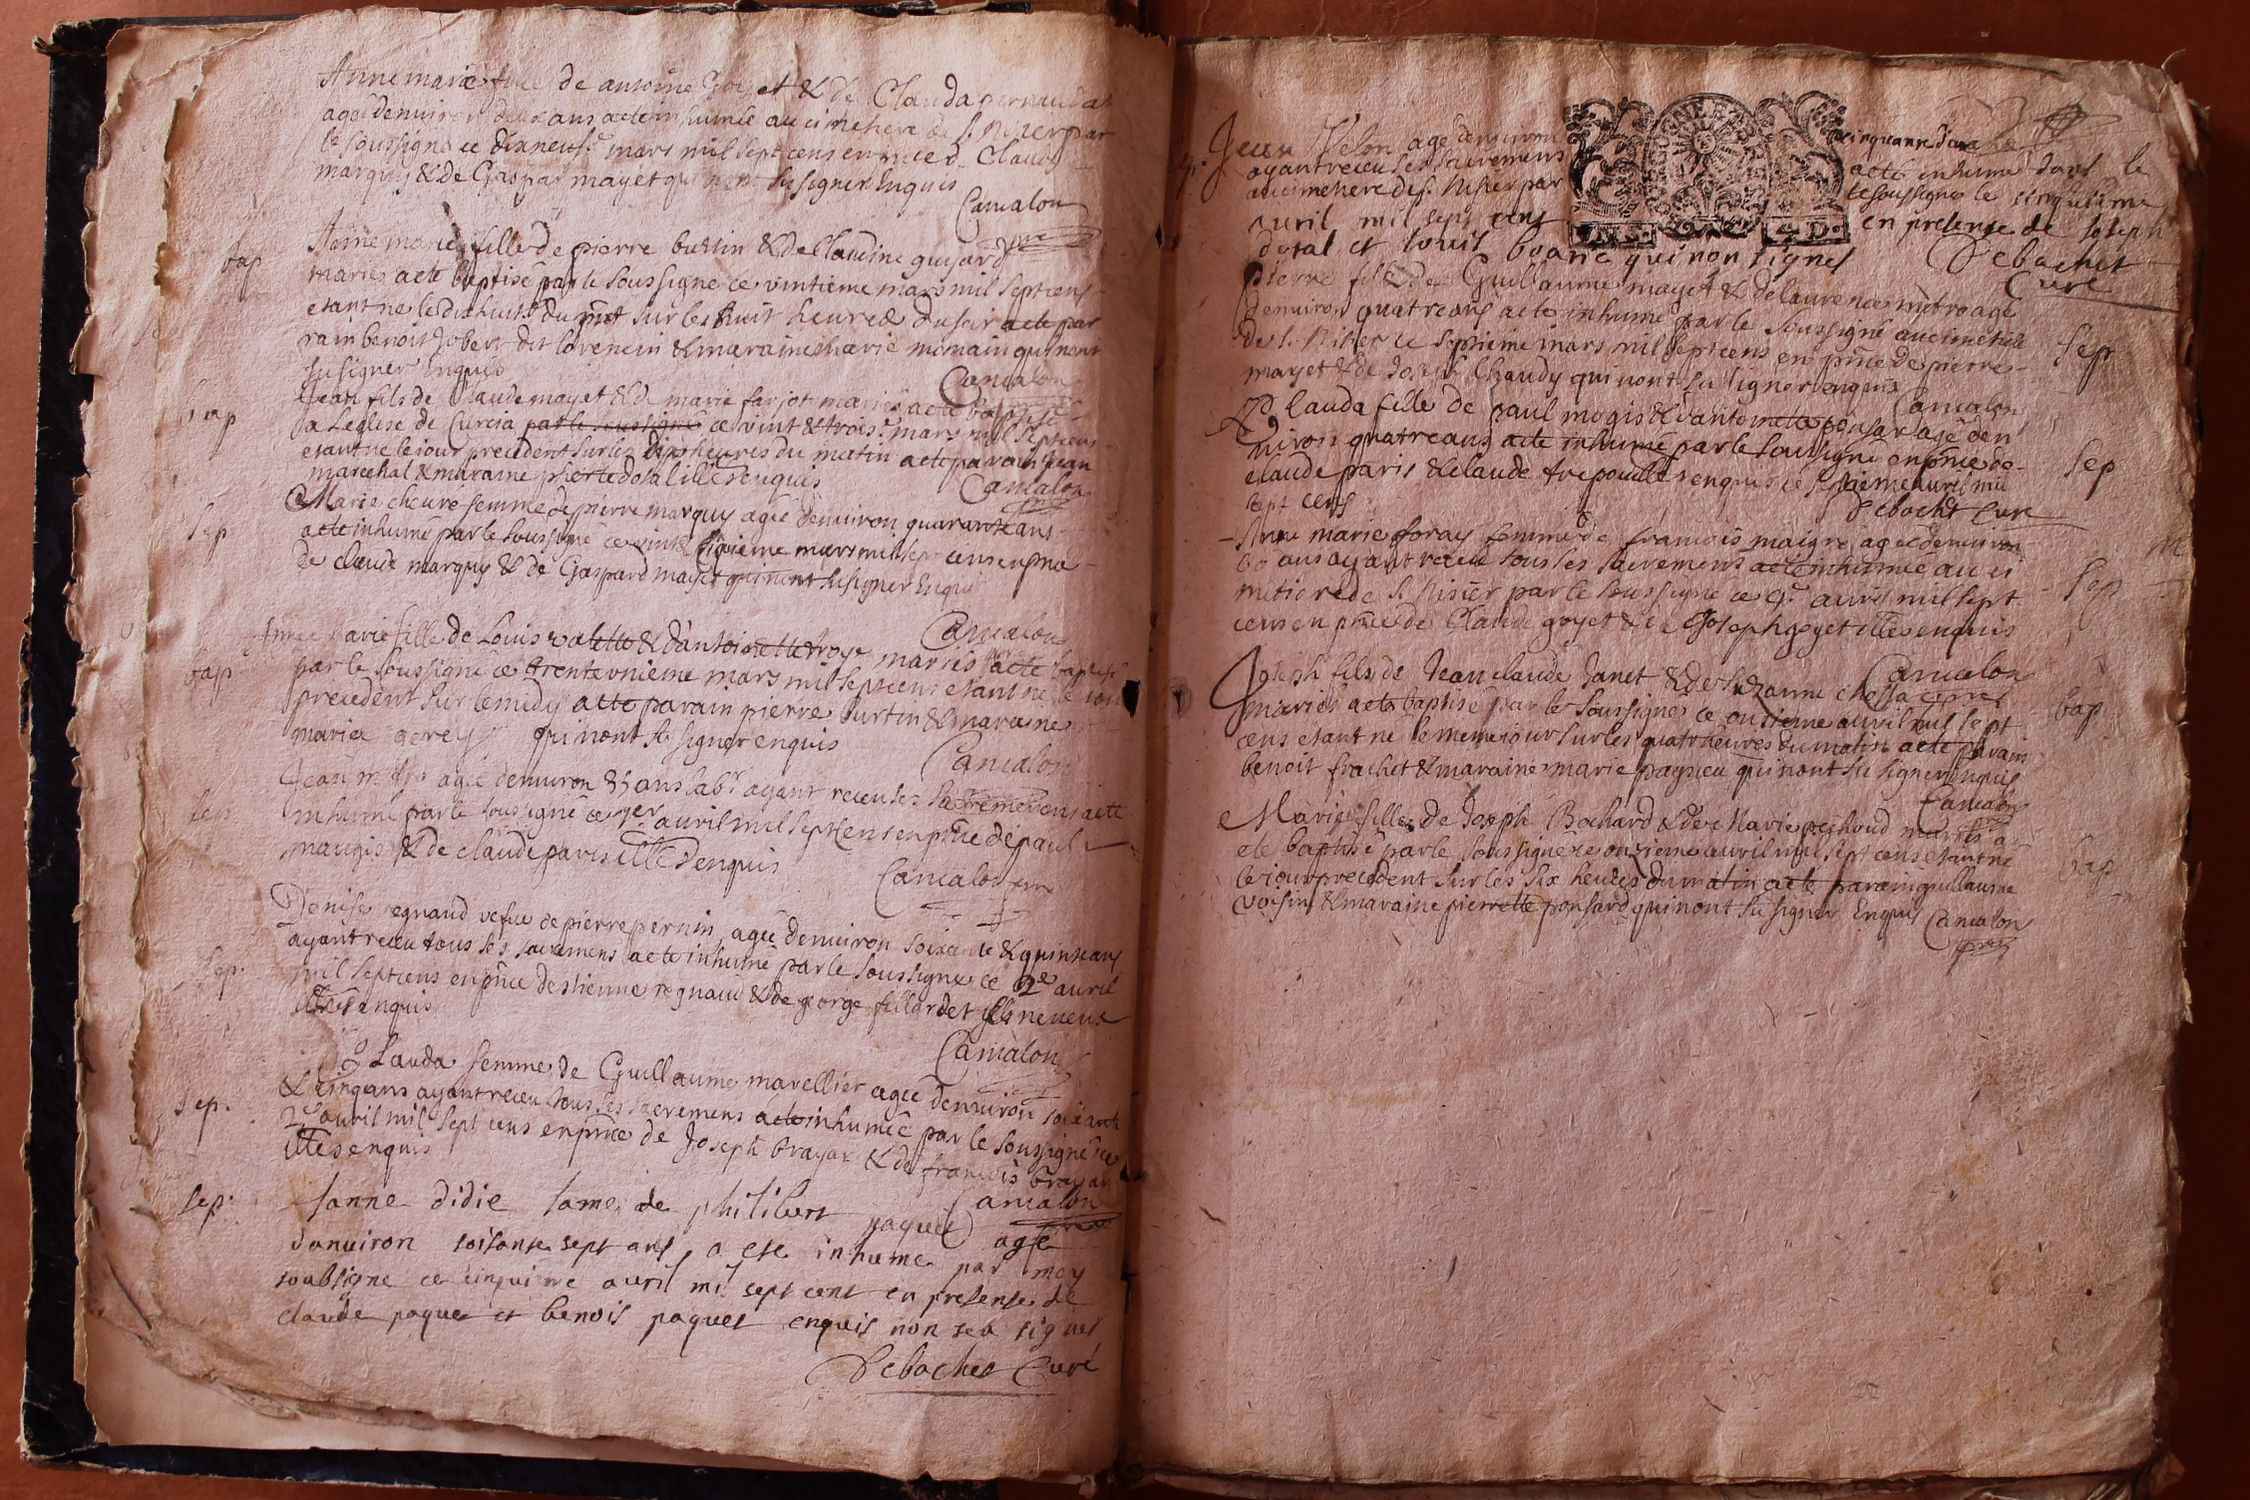 Anne marie fille de antoine Goyet & de Clauda
agée denuiron deux ans aeté inhumée au cimetiere de St Nisier par
le soussigné ce dixneufe mars mil sept cens en p̃nce d Claude
marquy & de Gaspar mayet qui nont su signer Enquis
Cancalon
bap
Anne marie fille de pierre burtin & de Claudine guisard
mariés a eté baptisé par le soussigné ce vintieme mars mil sept cens
etant né le dixhuite du p̃nt sur les huit heures du soir a eté par
rain benoit Jobert dit & maraine marie qui nont
su signer Enquis
Cancalon
bap
Jean fils de Claude mayet & de marie farjot mariés a eté baptisé
a Leglise de Curcia par le soussigné ce vint & troise mars mil sept cens
etant né le iour precedent sur les dix heures du matin a eté parain Jean
marechal & maraine pierrette Enquis
Cancalon
Sep
Marie cheure femme de pierre marquy agée denuiron quarante ans
a eté inhumé par le soussigné ce vint & sixieme mars mil sept cens en p̃nce
de claude marquy & de Gaspard mayet qui nont su signer Enquis
Cancalon
bap
Anne marie fille de Louis valette & d'antoinette troye mariés a eté baptisé
par le soussigné ce trenteunieme mars mil sept cens etant né le iour
precedent sur le midy a eté parain pierre burtin & maraine
marie gerey qui nont su signer enquis
Cancalon
Sep
Jean agé denuiron 85 ans labr ayant receu les sacremens a eté
inhumé par le soussigné ce 1er auril mil sept cens en p̃nce de paul
maugis & de claude paris Enquis
Cancalon
Sep.
Denise regnaud vefue de pierre pernin agée denuiron soixante & quinze ans
ayant receu tous les sacremens a eté inhumé par le soussigné ce 2e auril
mil sept cens en p̃nce de etienne regnaud & de george fillardet ses neueus
enquis
Cancalon
Sep.
Clauda femme de Guillaume marellier agée denuiron soixante
& cinq ans ayant receu tous les sacremens a eté inhumée par le soussigné ce
auril mil sept cens en p̃nce de Joseph brayar & de francois brayar
enquis
Cancalon
Sep.
Janne didie fame de philibert paquet agee
danuiron soisante sept ans a ete inhume par moy
soubsigne ce cinquieme auril mil sept cent en presense de
claude paquet et benois paquet enquis non seu signer
Debochet Curé
Jean Velon age denuiron cinquante
ayant receu les sacremens a eté inhume dans le
cimetiere de St Nisier par le soussigne le cinquieme
auril mil sept cent en presense de Joseph
dutal et louis qui non signes
Debochet
Curé
Sep
pierre fils de Guillaume mayet & de laurence metro agé
denuiron quatre ans a eté inhumé par le soussigné au cimetiere
de St Nisier ce septieme mars mil sept cens en p̃nce de pierre
mayet & de Joseph Chaudy qui nont su signer enquis
Cancalon
Sep
Clauda fille de paul mogis & d'antoinette ponsar agé den
uiron quatre ans a eté inhumé par le soussigné en p̃nce de
claude paris & claude trepoul enquis ce septieme auril mil
sept cens
Debochet Curé
Sep
Anne marie foray femme de francois maigre agée denuiron
60 ans ayant receu tous les sacremens a eté inhumée au ci
metiere de St Nisier par le soussigné ce 9e auril mil sept
cens en p̃nce de Claude goyet & de Joseph goyet enquis
Cancalon
bap
Joseph fils de Jean claude Janet & de Suzanne
mariés a eté baptisé par le soussigné ce onsieme auril mil sept
cens etant né le meme iour sur les quatre heures du matin a eté parain
benoit frachet & maraine marie qui nont su signer enquis
Cancalon
bap
Marie fille de Joseph Bochard & de Marie perhoud mariés a
eté baptisé par le soussigné ce onsieme auril mil sept cens etant né
le iour precedent sur les six heures du matin a eté parain guillaume
voisin & maraine pierrette ponsard qui nont su signer Enquis
Cancalon